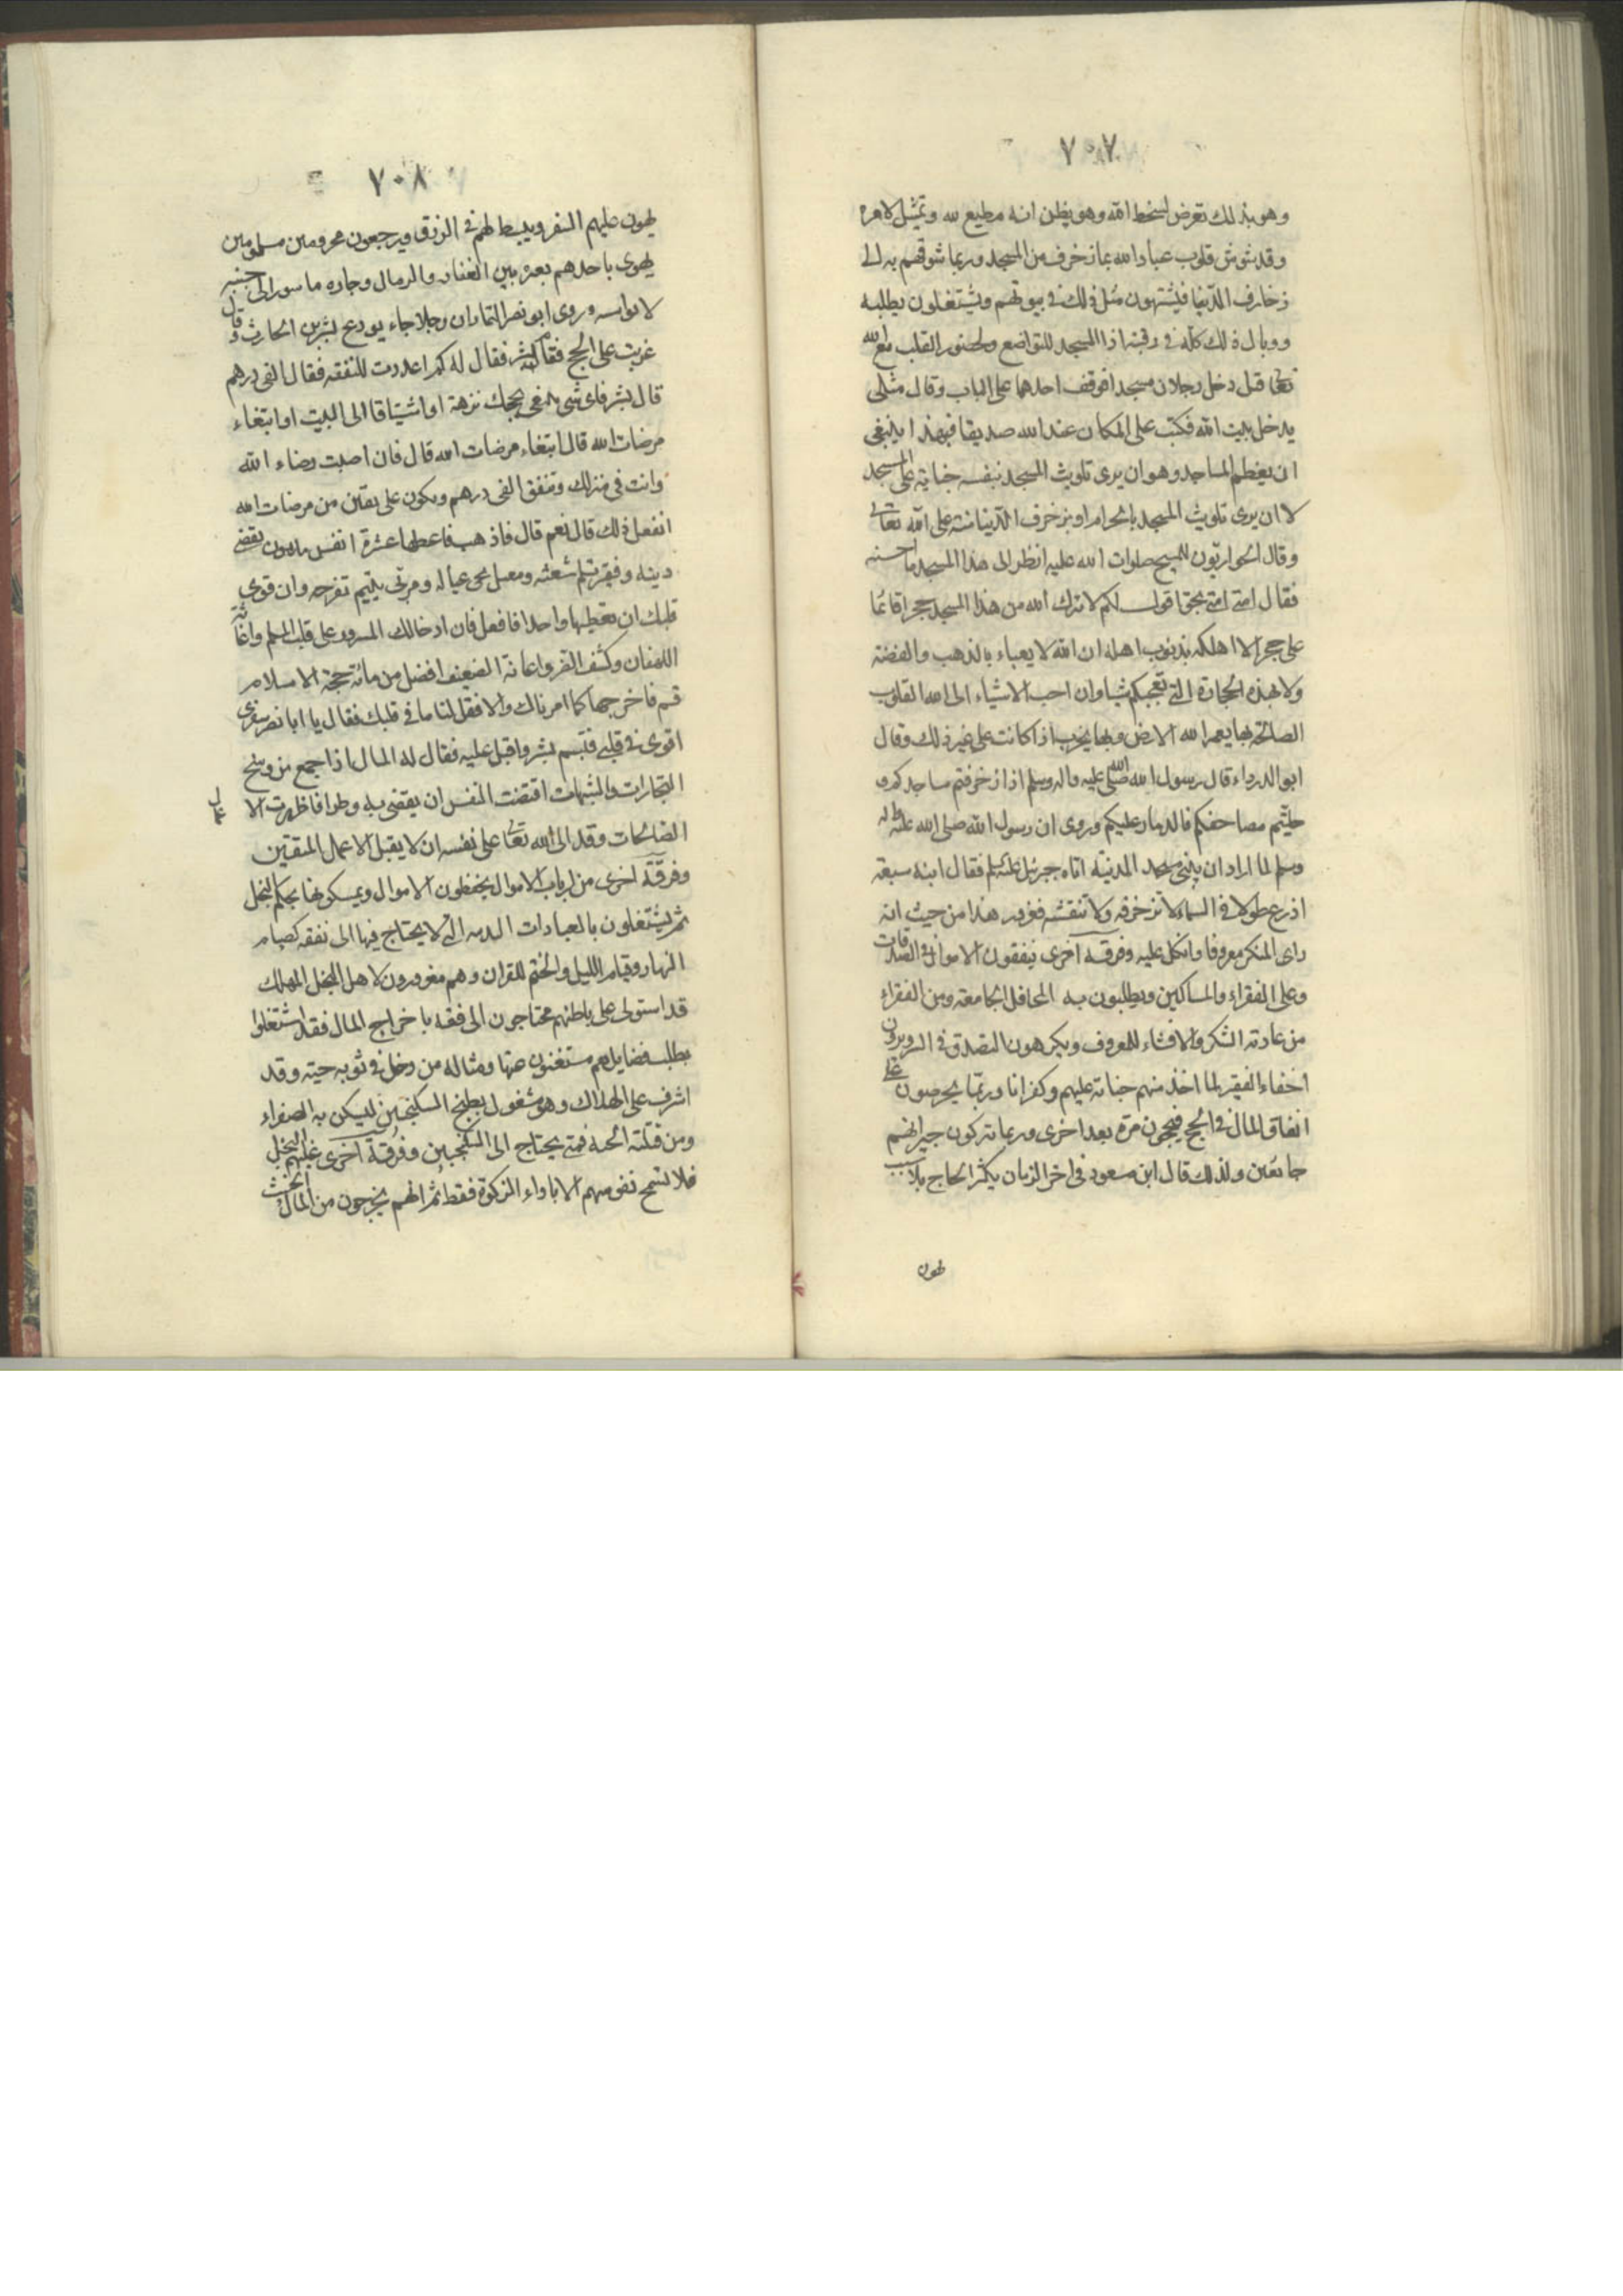 ٧٠٧
وهو بذلك تعرض لسخط الله وهو يظن انه مطيع لله وتمثيل لامره
وقد شوش قلوب عباد الله بما زخرف من المسجد وربما شوقهم به الى
زخارف الدنيا فيشتهون مثل ذلك في بيوتهم ويشتغلون بطلبه
ووبال ذلك كله في رقبته اذ المسجد للتواضع ولحضور القلب مع الله
تعالى قيل دخل رجلان مسجدا فوقف احدهما على الباب وقال مثلى
يدخل بيت الله فكتب على المكان عند الله صديقا فبهذا ينبغى
ان يعظم المساجد وهو ان يرى تلويث المسجد بنفسه جناية على المسجد
لا ان يرى تلويث المسجد بالحرام او بزخرف الدنيا منته على الله تعالى
وقال الحواريون للمسيح صلوات الله عليه انظر الى هذا المسجد ما احسنه
فقال امتى امتى بحق اقول لكم لا يترك الله من هذا المسجد حجرا قائما
على حجر الا اهلكه بذنوب اهله ان الله لا يعباء بالذهب والفضة
ولا بهذه الحجارة التى تعجبكم شيئا وان احب الاشياء الى الله القلوب
الصالحة بها يعمر الله الارض وبها يخرب اذا كانت على غير ذلك وقال
ابو الدرداء قال رسول الله صلى الله عليه واله وسلم اذا زخرفتم مساجدكم و
حليتم مصاحفكم فالدمار عليكم وروى ان رسول الله صلى الله عليه واله
وسلم لما اراد ان يبنى مسجد المدينة اتاه جبرئيل عليه السلم فقال ابنه سبعة
اذرع طولا في السماء لا تزخرفه ولا تنقشه فغرور هذا من حيث انه
راى المنكر معروفا واتكل عليه وفرقة اخرى ينفقون الاموال في الصدقات
وعلى الفقراء والمساكين ويطلبون به المحافل الجامعة ومن الفقراء
من عادته الشكر والافشاء للمعروف ويكرهون التصدق في السر ويرون
اخفاء الفقير لما اخذ منهم جناية عليهم وكفرانا وربما يحرصون على
انفاق المال في الحج فيحجون مرة بعد اخرى وربما تركون جيرانهم
جائعين ولذلك قال ابن مسعود في اخر الزمان يكثر الحاج بلا سبب
يهون
٧٠٨
يهون عليهم السفر ويبسط لهم في الرزق ويرجعون محرومين مسلوبين
يهوى باحدهم بعيره بين القفار والرمال وجاره ماسور الى جنبه
لا يواسيه وروى ابو نصر التمار ان رجلا جاء يودع بشر بن الحارث وقال
عزمت على الحج فقال بشر فقال له كم اعددت للنفقه فقال الفى درهم
قال بشر فاى شى تبتغى بحجك نزهة او اشتياقا الى البيت او ابتغاء
مرضات الله قال ابتغاء مرضات الله قال فان اصبت رضاء الله
وانت في منزلك وتنفق الفى درهم وتكون على يقين من مرضات الله
اتفعل ذلك قال نعم قال فاذهب فاعطها عشرة انفس مديون تقضى
دينه وفقير تلم شعثه ومعيل تحى عياله ومربى يتيم تفرحه وان قوى
قلبك ان تعطيها واحدا فافعل فان ادخالك السرور على قلب المسلم واغاثة
اللهفان وكشف الضر واعانة الضعيف افضل من مائة حجة الاسلام
قم فاخرجها كما امرناك والا فقل لنا ما في قلبك فقال يا ابا نصر سفرى
اقوى في قلبى فتبسم بشر واقبل عليه فقال له المال اذا جمع من وسخ
التجارات والشبهات اقتضت النفس ان يقضى به وطرا فاظهرت الا
عمال
الصالحات وقد الى الله تعالى على نفسه ان لا يقبل الا عمل المتقين
وفرقة اخرى من ارباب الاموال يحفظون الاموال ويمسكونها بحكم البخل
ثم يشتغلون بالعبادات البدنيه التى لا يحتاج فيها الى نفقه كصيام
النهار وقيام الليل والختم للقران وهم مغرورون لا هل البخل المهلك
قد استولى على باطنهم محتاجون الى قمعه باخراج المال فقد اشتغلوا
بطلب فضايل هم مستغنون عنها ومثاله من دخل في ثوبه حيته وقد
اشرف على الهلاك وهو مشغول بطبخ السكنجبين ليسكن به الصفراء
ومن قتلته الحية فمتى يحتاج الى السكنجبين وفرقة اخرى غلبهم البخل
فلا تسمح نفوسهم الا باداء الزكوة فقط ثم انهم يخرجون من المال الخبيث